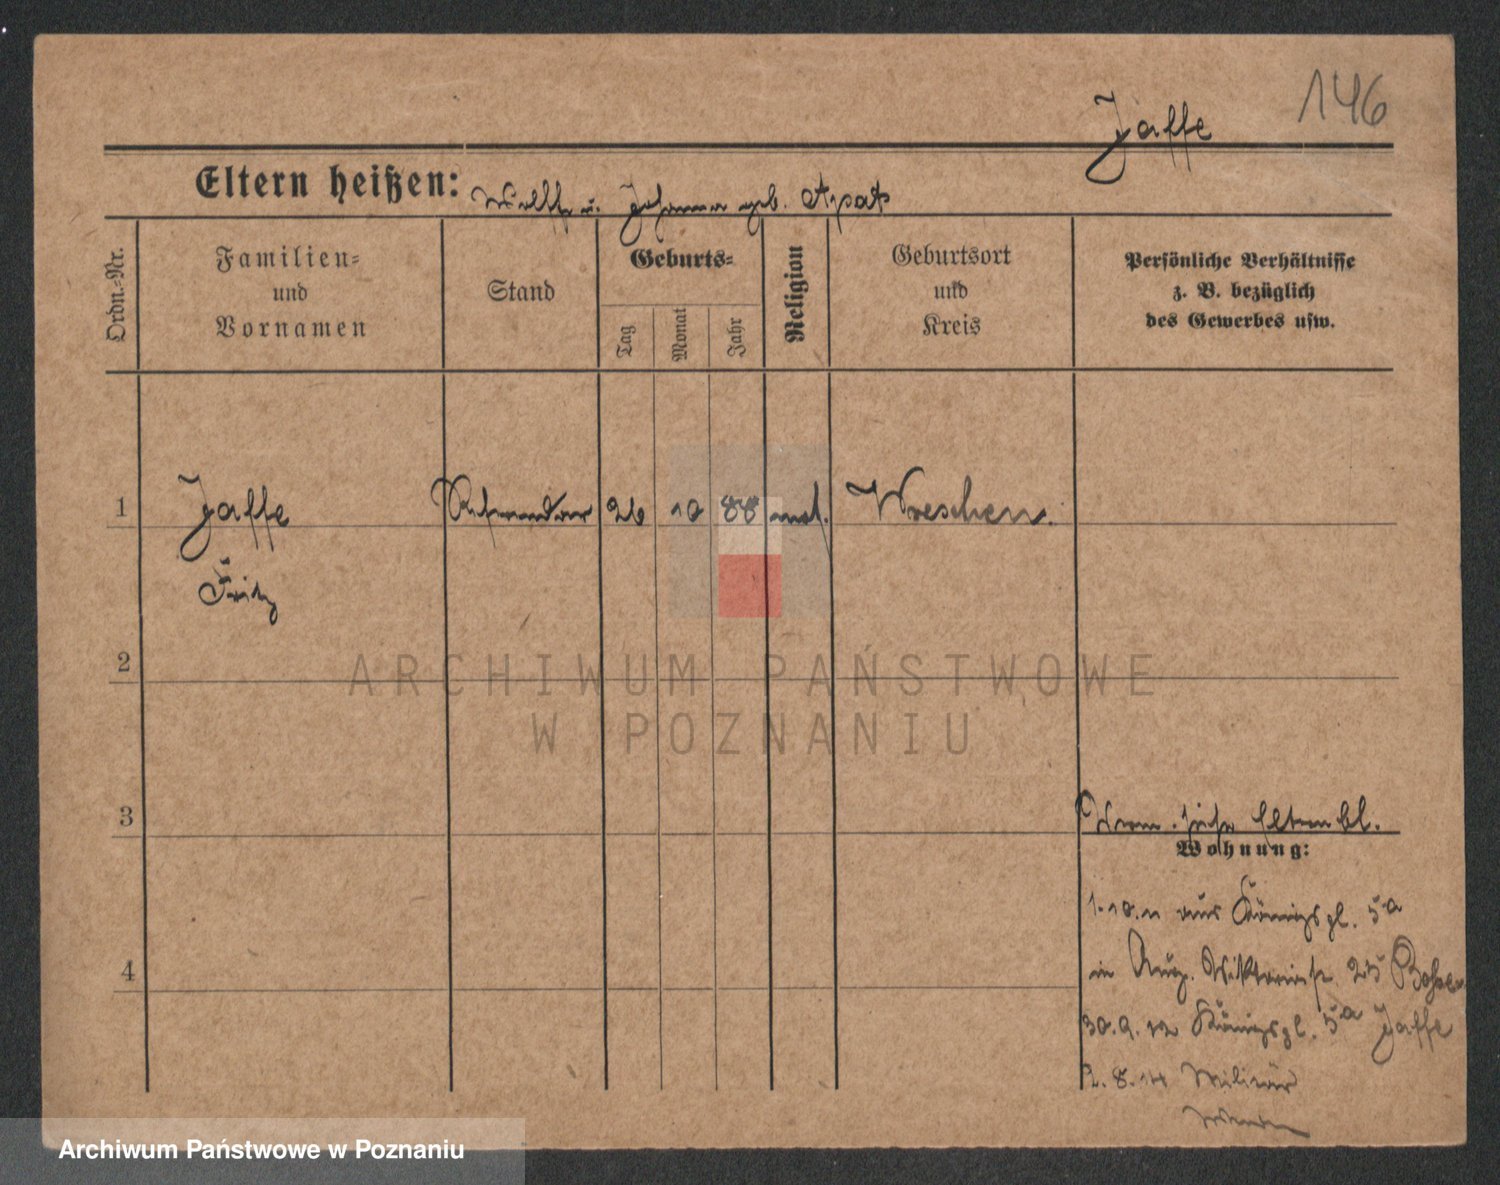 146
Jaffe
Eltern heißen: Wolff u. Johanna geb. Apat
Ordn.-Nr.
Familien-
und
Vornamen
Stand
Geburts-
Tag
Monat
Jahr
Religion
Geburtsort
und
Kreis
Persönliche Verhältnisse
z. B. bezüglich
des Gewerbes usw.
1 Jaffe Referendar 26 10 88 mos. Wreschen.
Fritz
2
ARCHIWUM PAŃSTWOWE
W POZNANIU
3
siehe Elternbl.
Wohnung:
1.10.11 aus Königspl. 5a
4
in Aug. Viktoriastr. 25
30.9.12 Königspl. 5a Jaffe
2.8.14 Militär
Archiwum Państwowe w Poznaniu